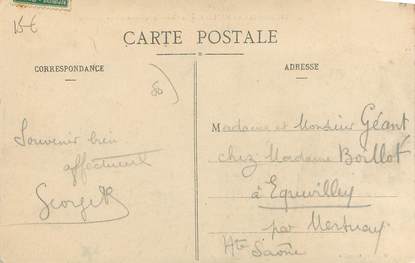 15€
CARTE POSTALE
CORRESPONDANCE
ADRESSE
Souvenir bien
affectueux
Georgette
Madame et Monsieur Géant
chez Madame Boillot
à Equevilley
par Mersuay
Hte Saône